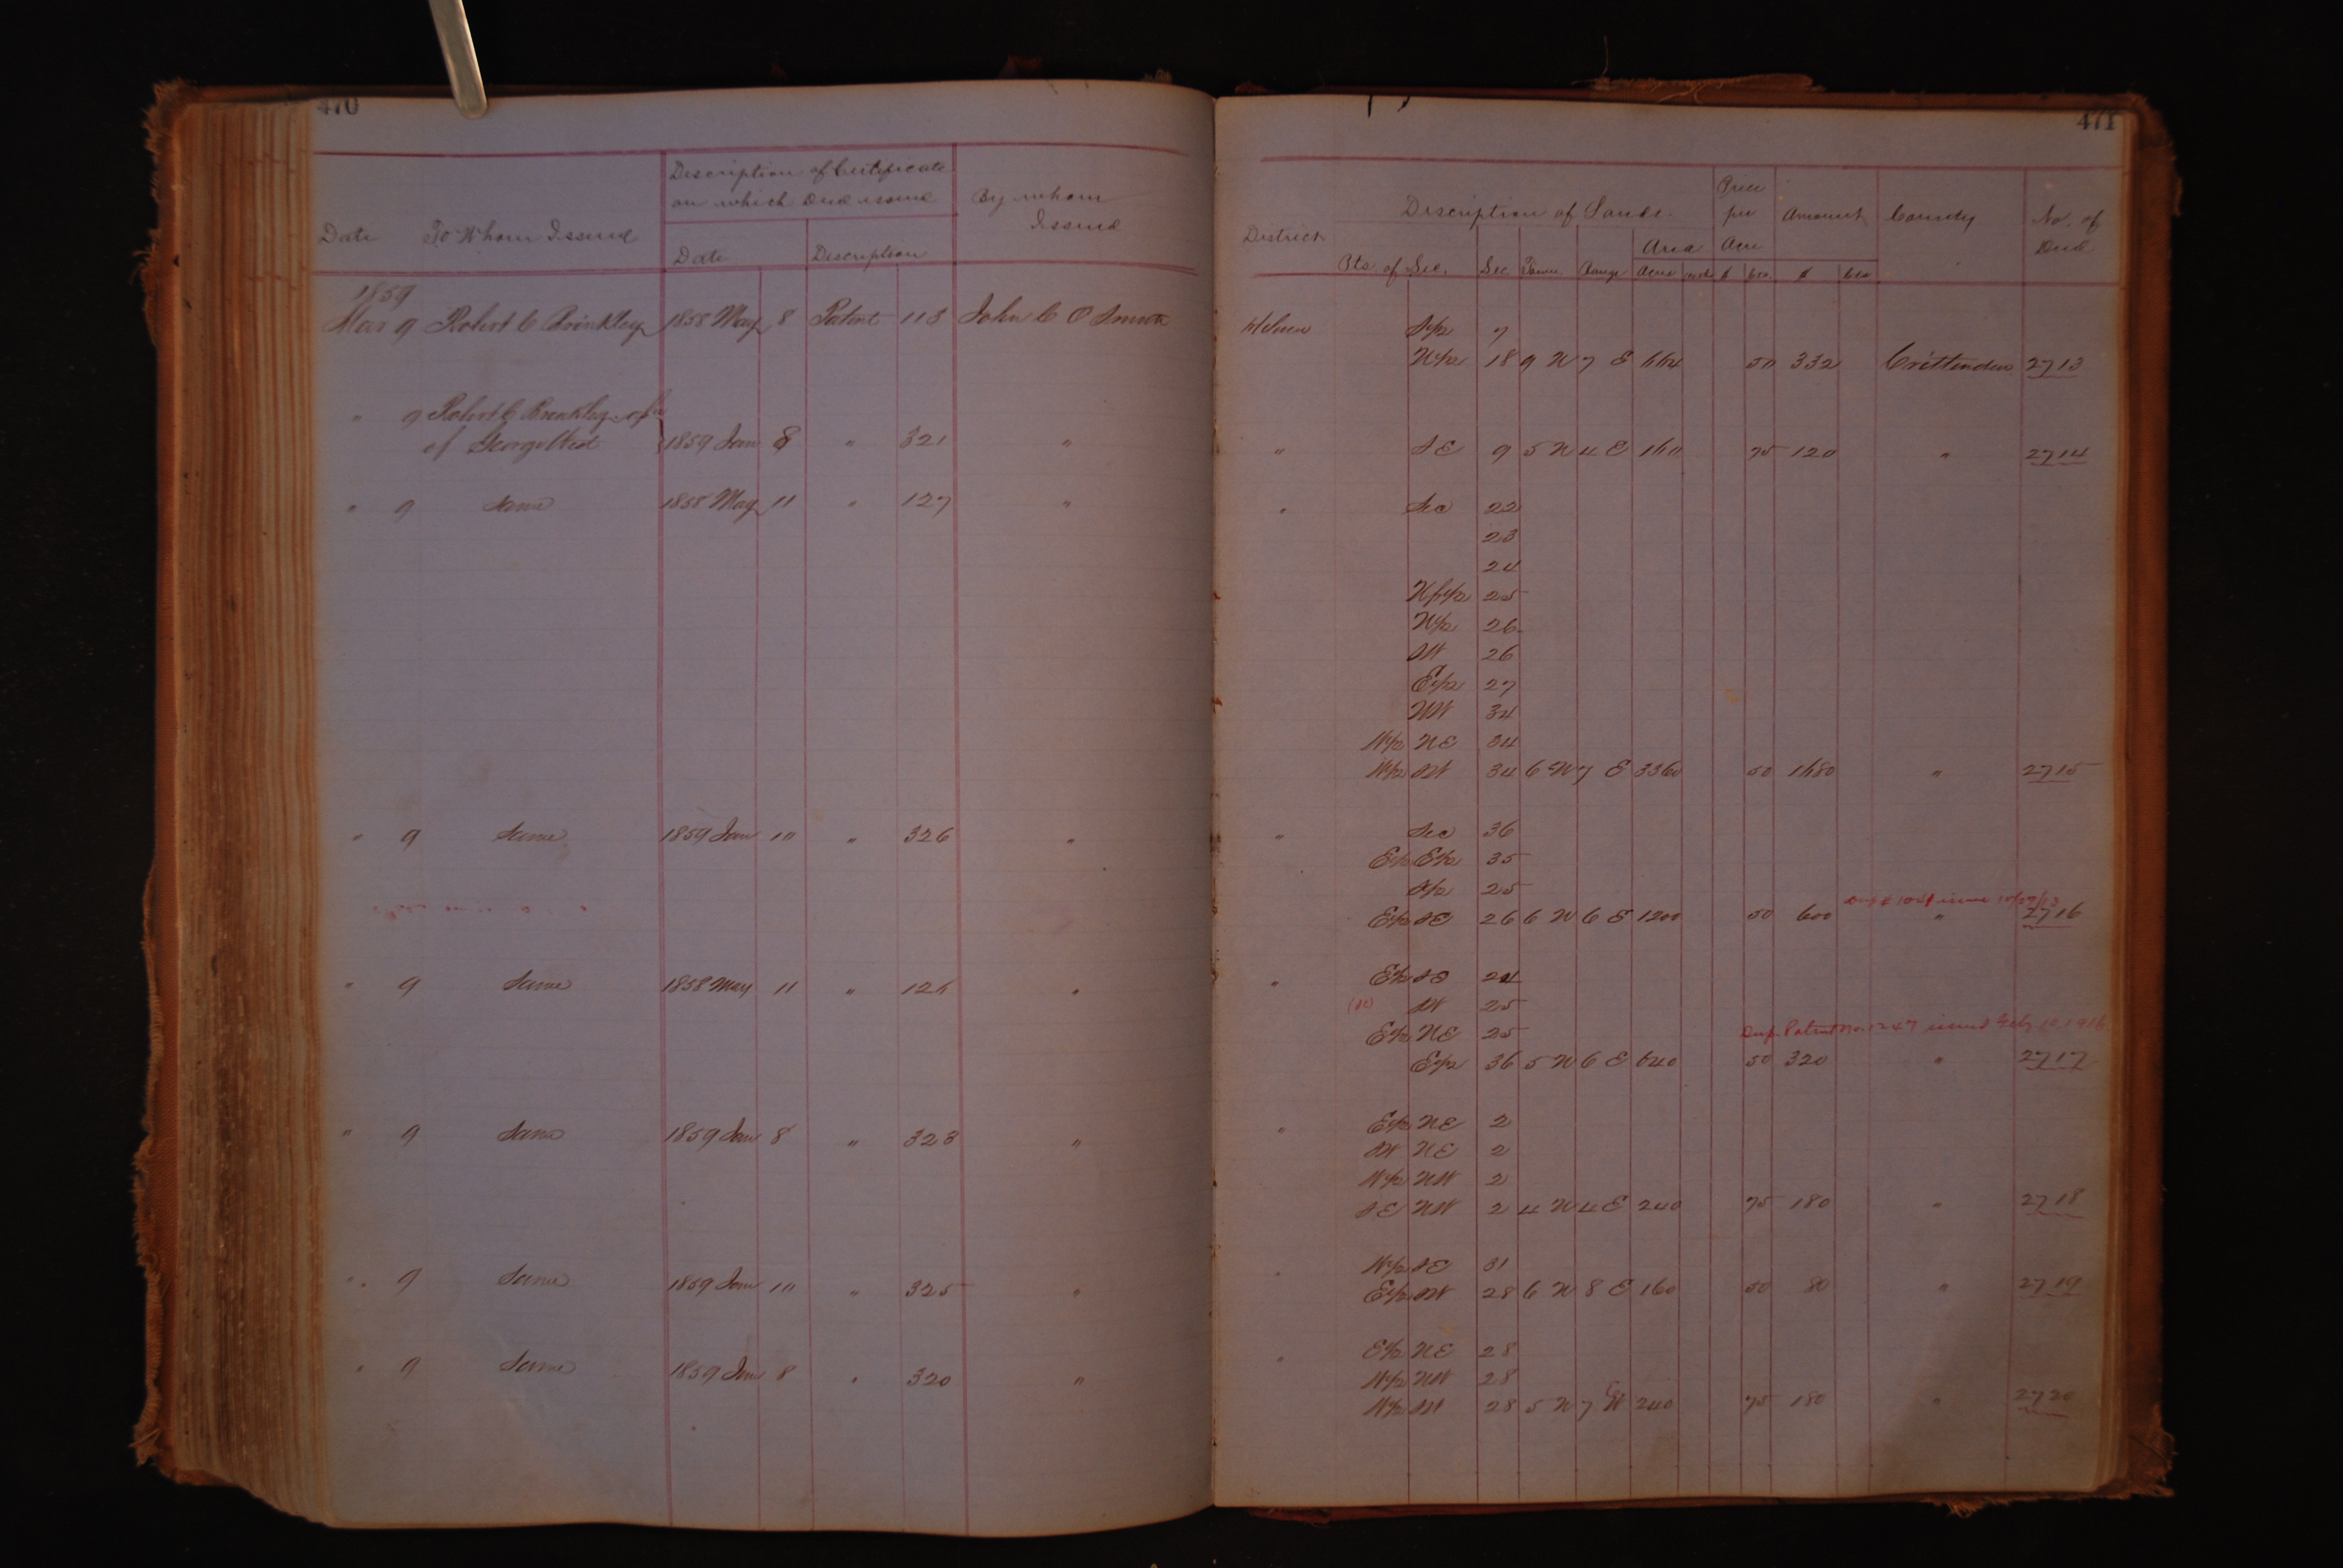 470
Description of Certificate
on which Deed issued
By whom
Issued
Date To Whom Issued
Date Description
1859
Mar 9 Robert C Brinkley 1858 May 8 Patent 113 John C O Smith
" 9 Robert C Brinkley
of George West 1859 Jan 8 " 321 "
" 9 Same 1858 May 11 " 127 "
" 9 Same 1859 Jan 10 " 326 "
" 9 Same 1858 May 11 " 126 "
" 9 Same 1859 Jan 8 " 323 "
" 9 Same 1859 Jan 10 " 325 "
" 9 Same 1859 Jan 8 " 320 "
471
District
Description of Lands.
Price
per
Acre
Amount County No. of
Deed
Area
Pts. of Sec. Sec Town Range Acres $ $
Helena S1/2 7
N1/2 18 9 N 7 E 664 50 332 Crittenden 2713
" SE 9 5 N 4 E 160 75 120 " 2714
" Sec 22
23
24
25
N1/2 26
SW 26
E1/2 27
NW 34
W1/2 NE 34
W1/2 SW 34 6 N 7 E 3360 50 1680 " 2715
" Sec 36
E1/2 E1/2 35
S1/2 25
E1/2 SE 26 6 N 6 E 1200 50 600 " 2716
" E1/2 SE 24
SW 25
E1/2 NE 25
Dup. Patent No. 1247 issued Feby 10 1916
E1/2 36 5 N 6 E 640 50 320 " 2717
" E1/2 NE 2
SW NE 2
W1/2 NW 2
SE NW 2 4 N 4 E 240 75 180 " 2718
" W1/2 SE 31
E1/2 SW 28 6 N 8 E 160 50 80 " 2719
" E1/2 NE 28
W1/2 NW 28
W1/2 SW 28 5 N 7 240 75 180 " 2720